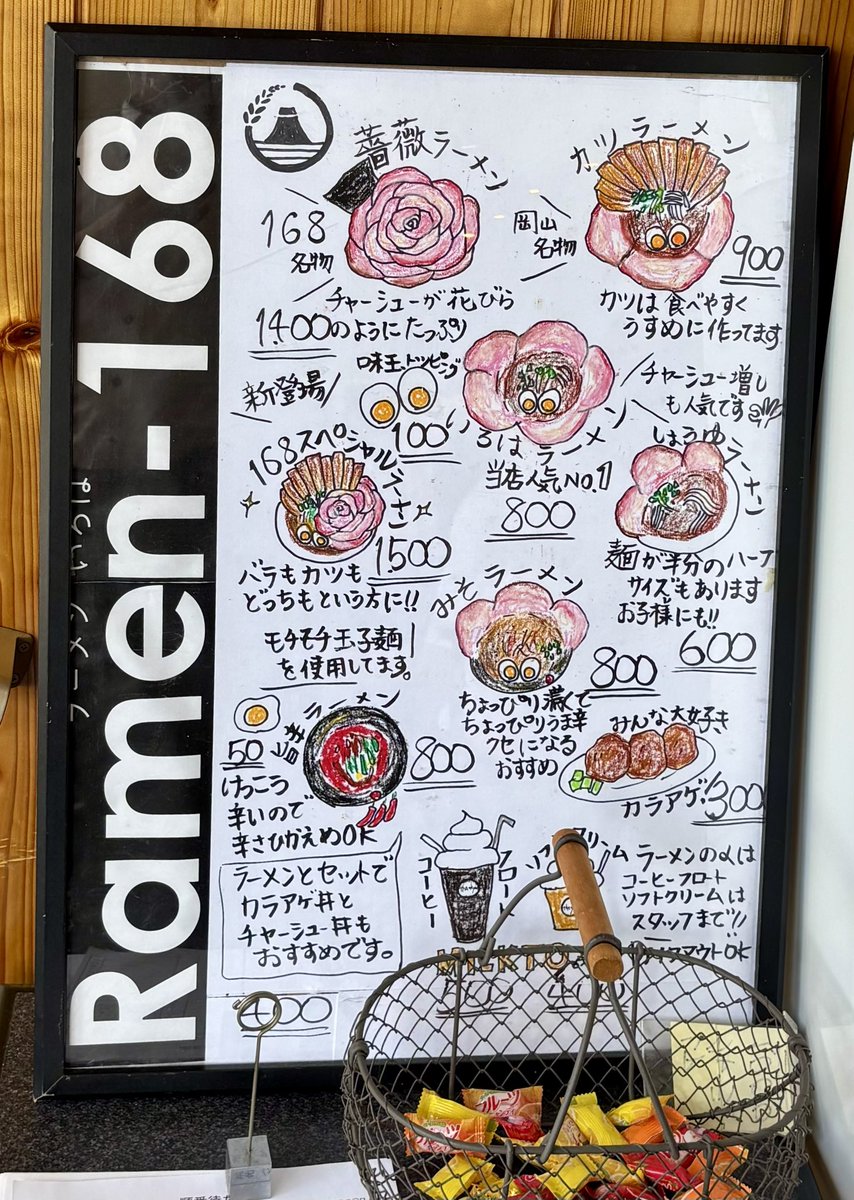 Ramen-168
ラーメン いろは
薔薇ラーメン
168
名物
チャーシューが花びら
1400のようにたっぷり
カツラーメン
岡山
名物
900
カツは食べやすく
うすめに作ってます
新登場
味玉トッピング
100
いろはラーメン
当店人気NO.1
800
チャーシュー増し
も人気です
しょうゆラーメン
麺が半分のハーフ
サイズもあります
お子様にも!!
600
168スペシャルラーメン
1500
バラもカツも
どっちもという方に!!
モチモチ玉子麺
を使用してます。
みそラーメン
800
ちょっぴり濃くて
ちょっぴりうま辛
クセになる
おすすめ
50
旨辛ラーメン
800
けっこう
辛いので
辛さひかえめOK
みんな大好き
カラアゲ!
300
ラーメンとセットで
カラアゲ丼と
チャーシュー丼も
おすすめです。
400
コーヒー
フロート
クリーム
ラーメンのαは
コーヒーフロート
ソフトクリームは
スタッフまで!!
アウトOK
400